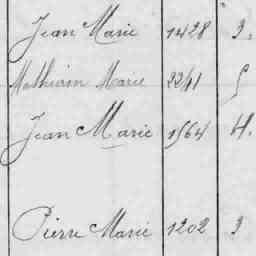 Jean Marie 1428 3.
Mathurin Marie 2241 5
Jean Marie 1564 4.
Pierre Marie 1202 3